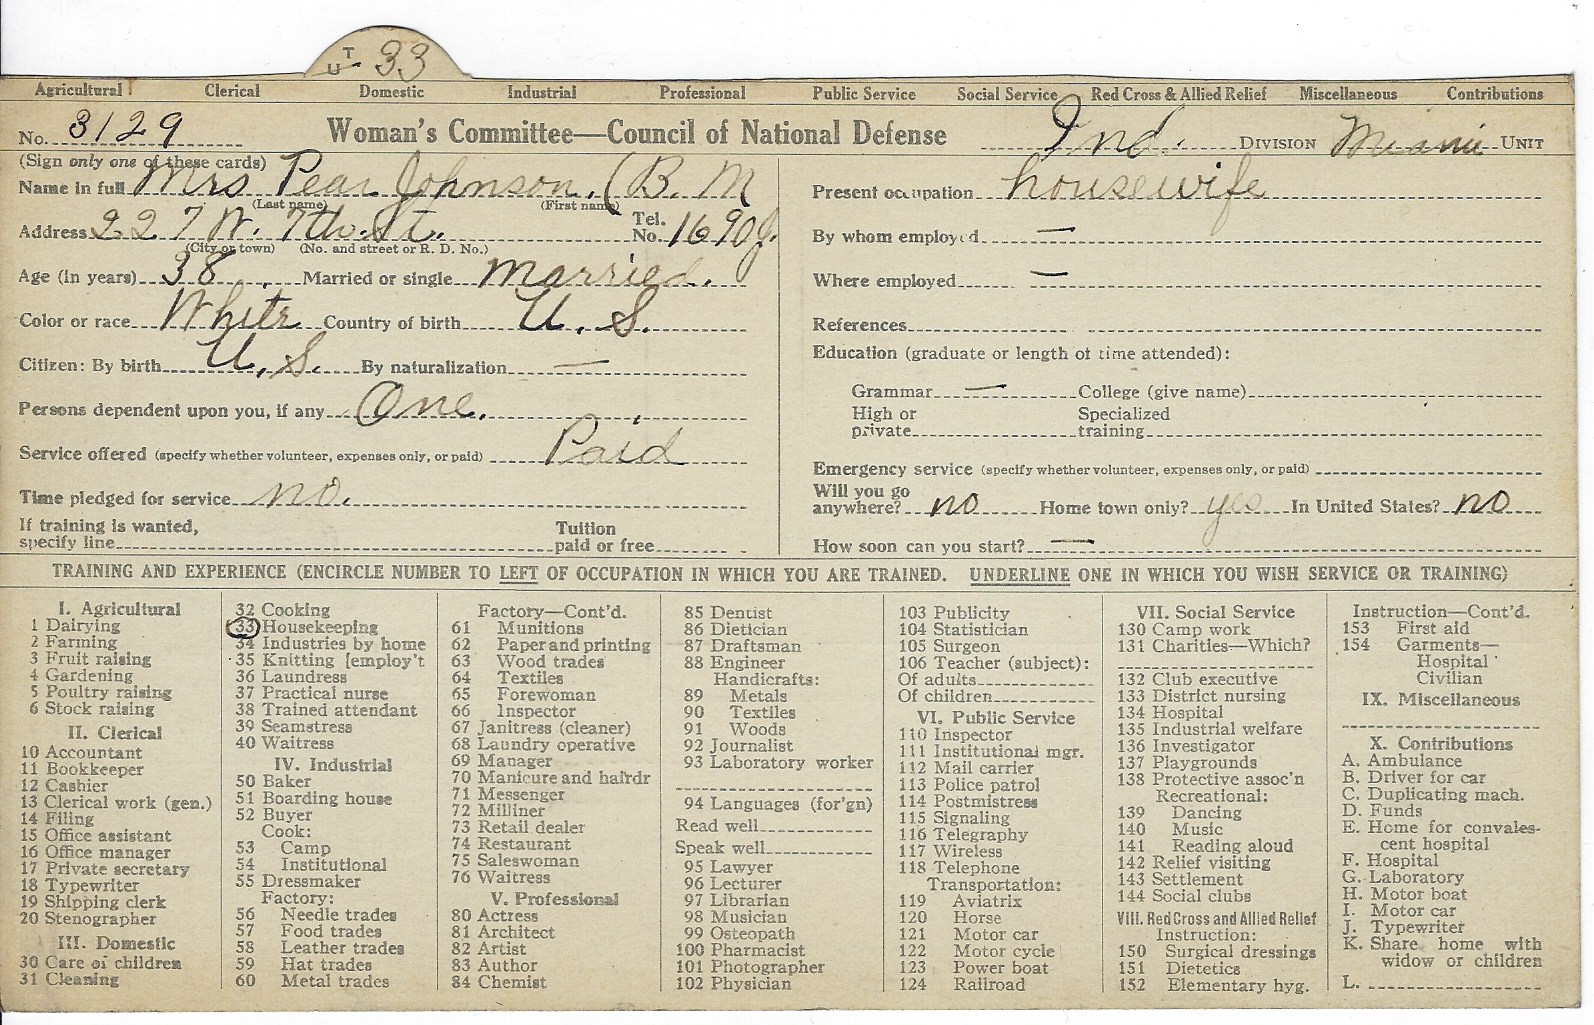 T U 33
Agricultural Clerical Domestic Industrial Professional Public Service Social Service Red Cross & Allied Relief Miscellaneous Contributions
No. 3129 Woman's Committee—Council of National Defense Ind. DIVISION Miami UNIT
(Sign only one of these cards)
Name in full Mrs Pear Johnson, (B. M
(Last name) (First name)
Address 227 W. 7th. St. Tel. No. 1690J.
(City or town) (No. and street or R. D. No.)
Age (in years) 38. Married or single married.
Color or race White Country of birth U. S.
Citizen: By birth U. S. By naturalization —
Persons dependent upon you, if any One.
Service offered (specify whether volunteer, expenses only, or paid) Paid
Time pledged for service no.
If training is wanted, specify line Tuition paid or free
Present occupation housewife
By whom employed —
Where employed —
References
Education (graduate or length of time attended):
Grammar — College (give name)
High or private Specialized training
Emergency service (specify whether volunteer, expenses only, or paid)
Will you go anywhere? no Home town only? yes In United States? no
How soon can you start? —
TRAINING AND EXPERIENCE (ENCIRCLE NUMBER TO LEFT OF OCCUPATION IN WHICH YOU ARE TRAINED. UNDERLINE ONE IN WHICH YOU WISH SERVICE OR TRAINING)
I. Agricultural
1 Dairying
2 Farming
3 Fruit raising
4 Gardening
5 Poultry raising
6 Stock raising
II. Clerical
10 Accountant
11 Bookkeeper
12 Cashier
13 Clerical work (gen.)
14 Filing
15 Office assistant
16 Office manager
17 Private secretary
18 Typewriter
19 Shipping clerk
20 Stenographer
III. Domestic
30 Care of children
31 Cleaning
32 Cooking
33 Housekeeping
34 Industries by home
35 Knitting [employ't
36 Laundress
37 Practical nurse
38 Trained attendant
39 Seamstress
40 Waitress
IV. Industrial
50 Baker
51 Boarding house
52 Buyer
Cook:
53 Camp
54 Institutional
55 Dressmaker
Factory:
56 Needle trades
57 Food trades
58 Leather trades
59 Hat trades
60 Metal trades
Factory—Cont'd.
61 Munitions
62 Paper and printing
63 Wood trades
64 Textiles
65 Forewoman
66 Inspector
67 Janitress (cleaner)
68 Laundry operative
69 Manager
70 Manicure and hairdr
71 Messenger
72 Milliner
73 Retail dealer
74 Restaurant
75 Saleswoman
76 Waitress
V. Professional
80 Actress
81 Architect
82 Artist
83 Author
84 Chemist
85 Dentist
86 Dietician
87 Draftsman
88 Engineer
Handicrafts:
89 Metals
90 Textiles
91 Woods
92 Journalist
93 Laboratory worker
94 Languages (for'gn)
Read well
Speak well
95 Lawyer
96 Lecturer
97 Librarian
98 Musician
99 Osteopath
100 Pharmacist
101 Photographer
102 Physician
103 Publicity
104 Statistician
105 Surgeon
106 Teacher (subject):
Of adults
Of children
VI. Public Service
110 Inspector
111 Institutional mgr.
112 Mail carrier
113 Police patrol
114 Postmistress
115 Signaling
116 Telegraphy
117 Wireless
118 Telephone
Transportation:
119 Aviatrix
120 Horse
121 Motor car
122 Motor cycle
123 Power boat
124 Railroad
VII. Social Service
130 Camp work
131 Charities—Which?
132 Club executive
133 District nursing
134 Hospital
135 Industrial welfare
136 Investigator
137 Playgrounds
138 Protective assoc'n
Recreational:
139 Dancing
140 Music
141 Reading aloud
142 Relief visiting
143 Settlement
144 Social clubs
VIII. Red Cross and Allied Relief
Instruction:
150 Surgical dressings
151 Dietetics
152 Elementary hyg.
Instruction—Cont'd.
153 First aid
154 Garments—
Hospital
Civilian
IX. Miscellaneous
X. Contributions
A. Ambulance
B. Driver for car
C. Duplicating mach.
D. Funds
E. Home for convales-
cent hospital
F. Hospital
G. Laboratory
H. Motor boat
I. Motor car
J. Typewriter
K. Share home with
widow or children
L.